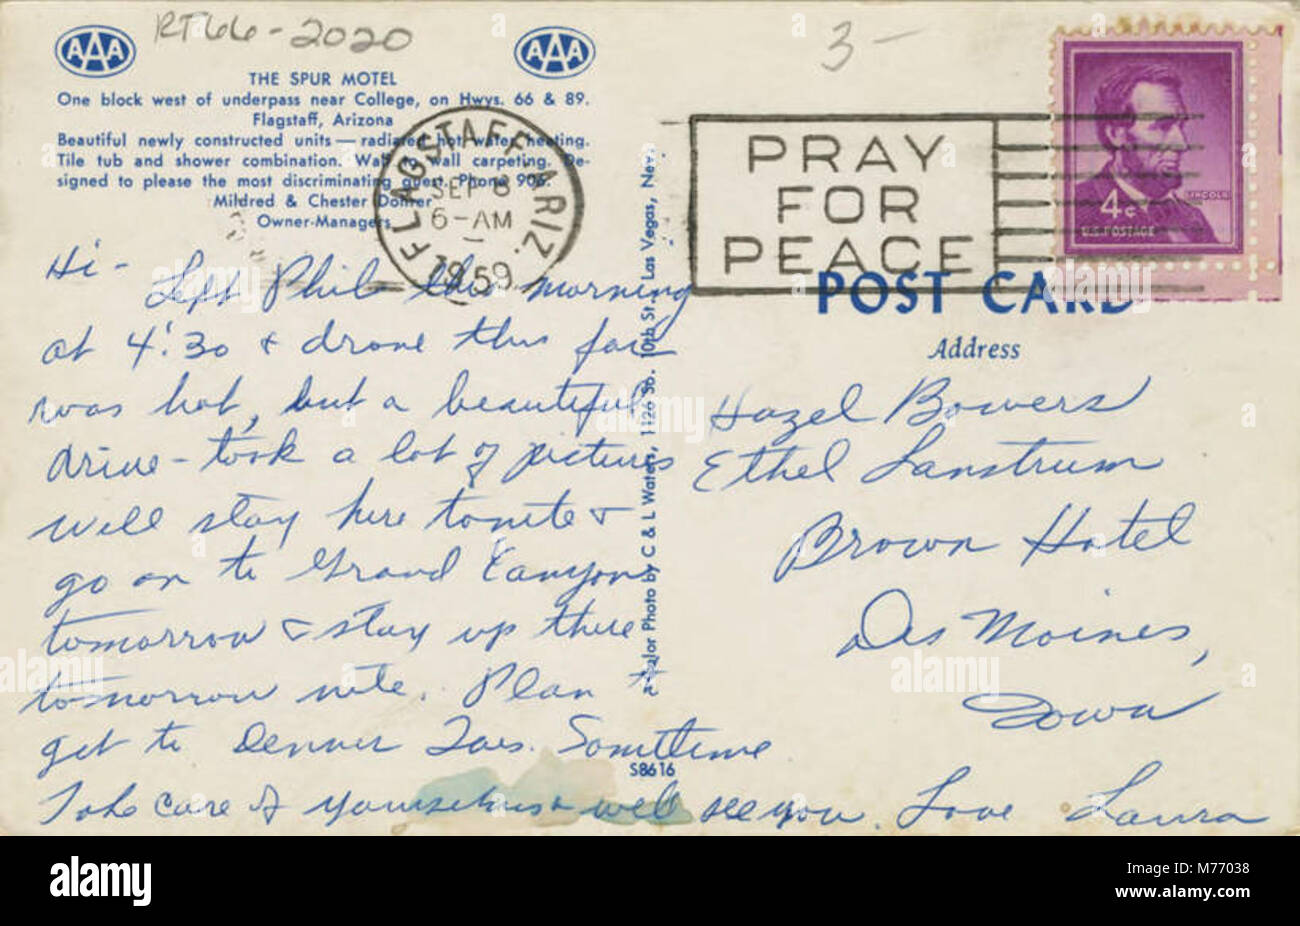 RT66-2020
3-
AAA
AAA
THE SPUR MOTEL
One block west of underpass near College, on Hwys. 66 & 89.
Flagstaff, Arizona
Beautiful newly constructed units — radiared hot water heating.
Tile tub and shower combination. Wall to wall carpeting. De-
signed to please the most discriminating guest. Phone 906.
Mildred & Chester Dohrer
Owner-Managers
FLAGSTAFF ARIZ.
SEP 8
6-AM
1959
PRAY
FOR
PEACE
LINCOLN
4¢
U.S. POSTAGE
POST CARD
Address
Hi -
Left Phil this morning
at 4:30 & drove this far
was hot, but a beautiful
drive - took a lot of pictures
will stay here tonite &
go on to Grand Canyon
tomorrow & stay up there
tomorrow nite. Plan to
get to Denver Tues. Sometime
Take care of yourselves & will see you. Love Laura
Hazel Bowers
Ethel Lanstrum
Brown Hotel
Des Moines,
Iowa
Color Photo by C & L Waters, 1126 So. 10th St., Las Vegas, Nev.
S8616
alamy
alamy
alamy
M77038
www.alamy.com